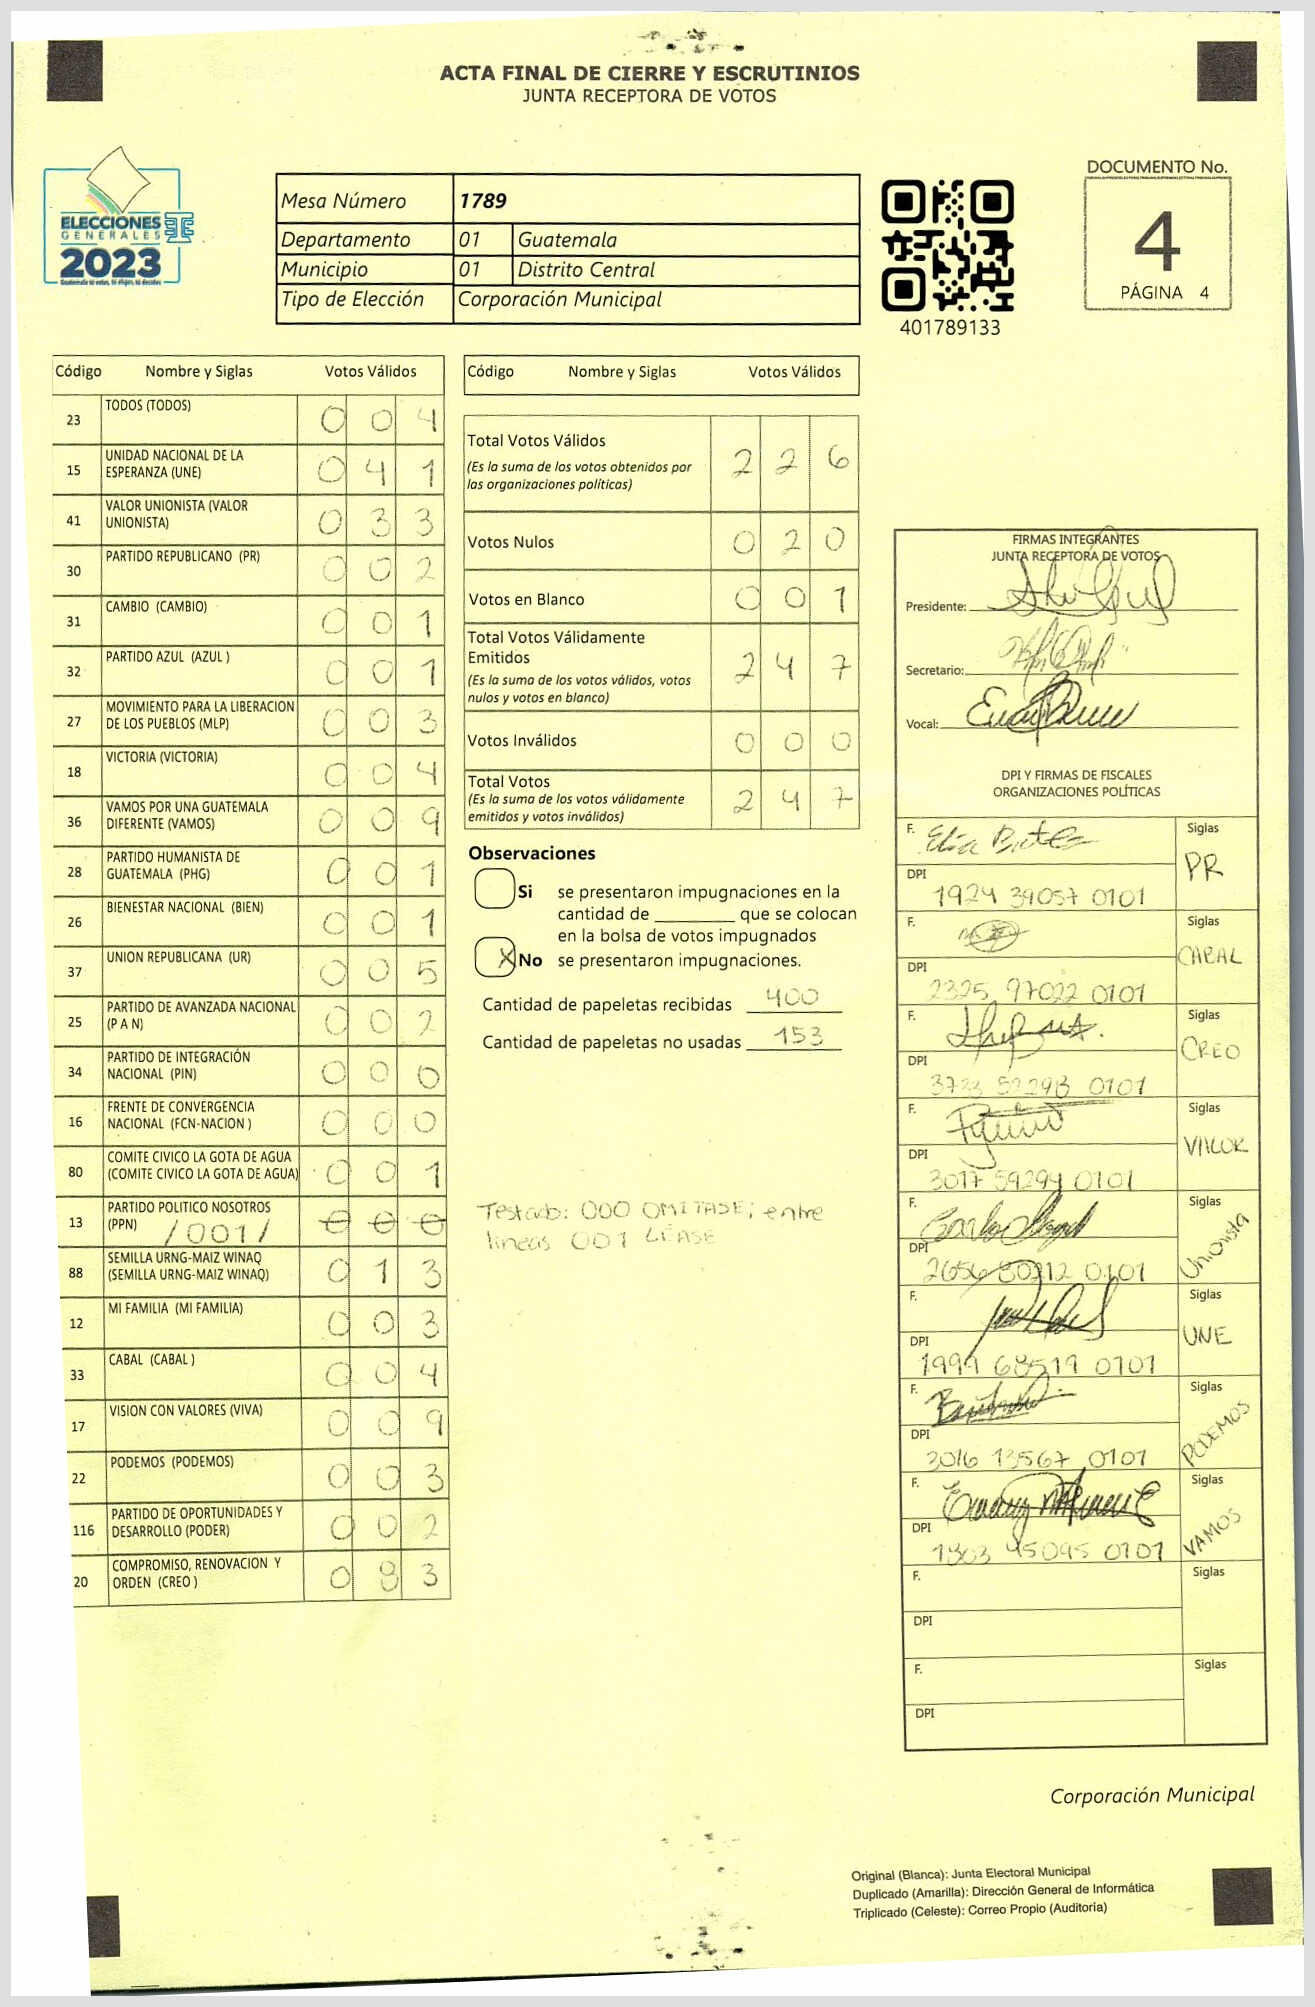 ACTA FINAL DE CIERRE Y ESCRUTINIOS
JUNTA RECEPTORA DE VOTOS
ELECCIONES
GENERALES
2023
Mesa Número 1789
Departamento 01 Guatemala
Municipio 01 Distrito Central
Tipo de Elección Corporación Municipal
401789133
DOCUMENTO No.
4
PÁGINA 4
Código Nombre y Siglas Votos Válidos
23 TODOS (TODOS) 0 0 4
15 UNIDAD NACIONAL DE LA ESPERANZA (UNE) 0 4 1
41 VALOR UNIONISTA (VALOR UNIONISTA) 0 3 3
30 PARTIDO REPUBLICANO (PR) 0 0 2
31 CAMBIO (CAMBIO) 0 0 1
32 PARTIDO AZUL (AZUL ) 0 0 1
27 MOVIMIENTO PARA LA LIBERACION DE LOS PUEBLOS (MLP) 0 0 3
18 VICTORIA (VICTORIA) 0 0 4
36 VAMOS POR UNA GUATEMALA DIFERENTE (VAMOS) 0 0 9
28 PARTIDO HUMANISTA DE GUATEMALA (PHG) 0 0 1
26 BIENESTAR NACIONAL (BIEN) 0 0 1
37 UNION REPUBLICANA (UR) 0 0 5
25 PARTIDO DE AVANZADA NACIONAL (P A N) 0 0 2
34 PARTIDO DE INTEGRACIÓN NACIONAL (PIN) 0 0 0
16 FRENTE DE CONVERGENCIA NACIONAL (FCN-NACION ) 0 0 0
80 COMITE CIVICO LA GOTA DE AGUA (COMITE CIVICO LA GOTA DE AGUA) 0 0 1
13 PARTIDO POLITICO NOSOTROS (PPN) /001/ 0 0 0
88 SEMILLA URNG-MAIZ WINAQ (SEMILLA URNG-MAIZ WINAQ) 0 1 3
12 MI FAMILIA (MI FAMILIA) 0 0 3
33 CABAL (CABAL ) 0 0 4
17 VISION CON VALORES (VIVA) 0 0 9
22 PODEMOS (PODEMOS) 0 0 3
116 PARTIDO DE OPORTUNIDADES Y DESARROLLO (PODER) 0 0 2
20 COMPROMISO, RENOVACION Y ORDEN (CREO ) 0 8 3
Código Nombre y Siglas Votos Válidos
Total Votos Válidos 2 2 6
(Es la suma de los votos obtenidos por
las organizaciones políticas)
Votos Nulos 0 2 0
Votos en Blanco 0 0 1
Total Votos Válidamente
Emitidos 2 4 7
(Es la suma de los votos válidos, votos
nulos y votos en blanco)
Votos Inválidos 0 0 0
Total Votos 2 4 7
(Es la suma de los votos válidamente
emitidos y votos inválidos)
Observaciones
Si se presentaron impugnaciones en la
cantidad de ________ que se colocan
en la bolsa de votos impugnados
X No se presentaron impugnaciones.
Cantidad de papeletas recibidas 400
Cantidad de papeletas no usadas 153
Testado: 000 OMITASE; entre
lineas 001 LÉASE
FIRMAS INTEGRANTES
JUNTA RECEPTORA DE VOTOS
Presidente:
Secretario:
Vocal:
DPI Y FIRMAS DE FISCALES
ORGANIZACIONES POLÍTICAS
F. Siglas PR
DPI 1924 39057 0101
F. Siglas CABAL
DPI 2325 97022 0101
F. Siglas CREO
DPI 0101
F. Siglas VALOR
DPI 3017 59294 0101
F. Siglas Unionista
DPI 2656 80712 0101
F. Siglas UNE
DPI 1999 68519 0101
F. Siglas PODEMOS
DPI 3016 13567 0101
F. Siglas VAMOS
DPI 45095 0101
F. Siglas
DPI
F. Siglas
DPI
Corporación Municipal
Original (Blanca): Junta Electoral Municipal
Duplicado (Amarilla): Dirección General de Informática
Triplicado (Celeste): Correo Propio (Auditoria)